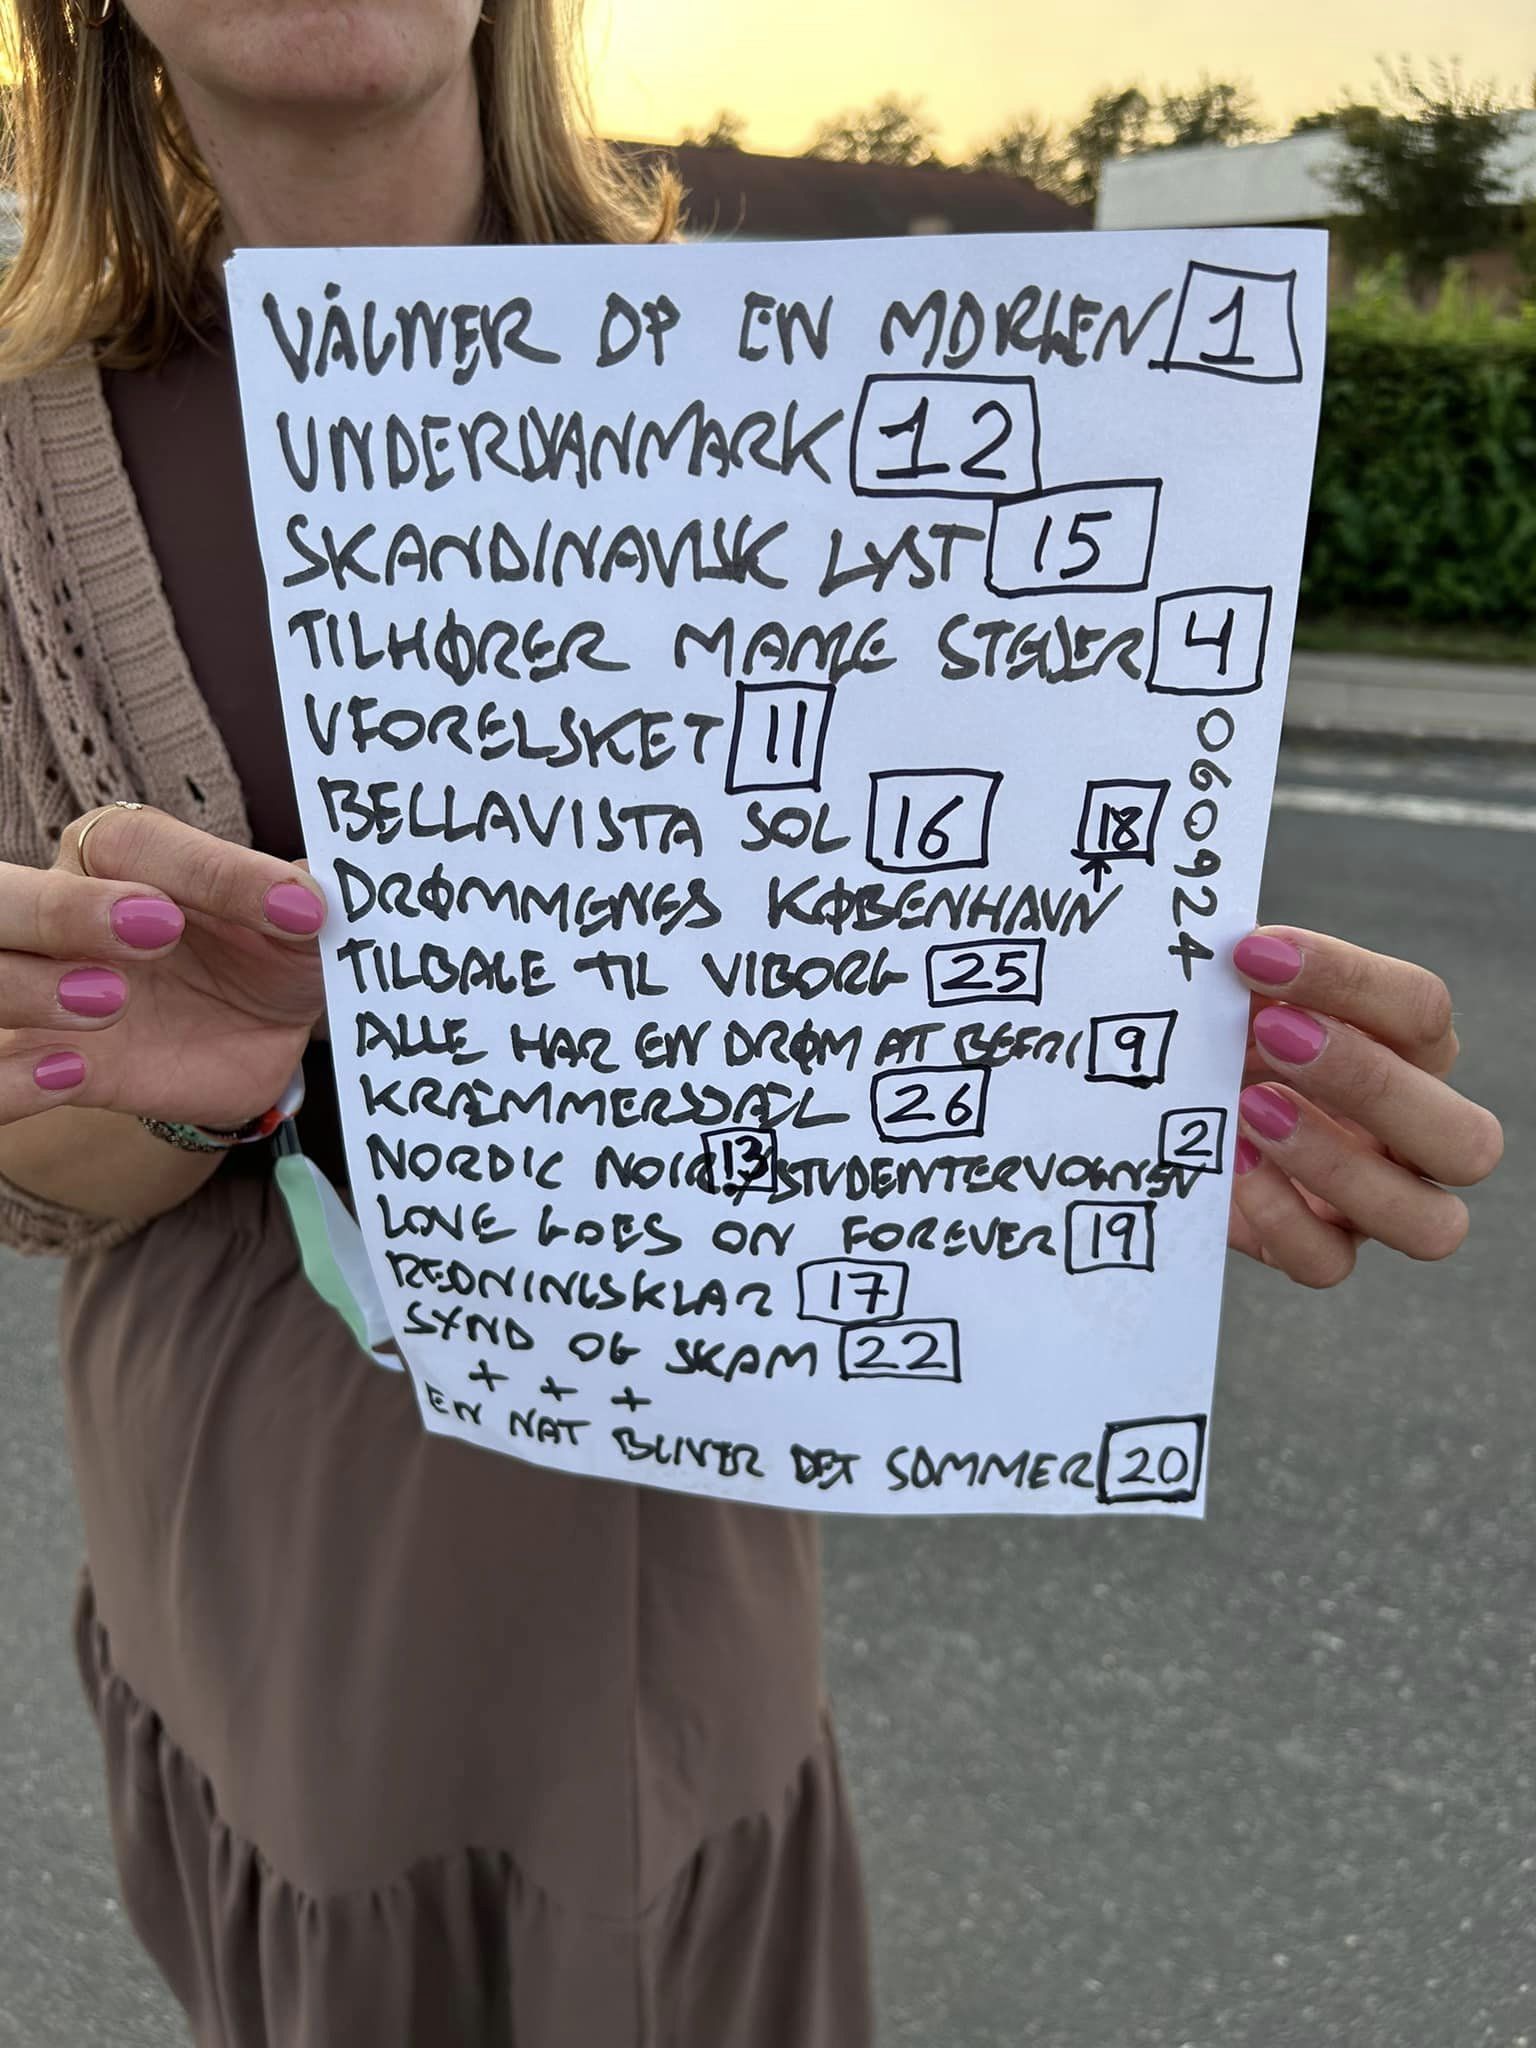 VÅGNER OP EN MORGEN 1
UNDERDANMARK 12
SKANDINAVISK LYST 15
TILHØRER MANGE STEDER 4
VFORELSKET 11
BELLAVISTA SOL 16
18
DRØMMENES KØBENHAVN
TILBAGE TIL VIBORG 25
ALLE HAR EN DRØM AT BEFRI 9
KRÆMMERSJÆL 26
NORDIC NOIR 13 STUDENTERVOGNEN 2
LOVE GOES ON FOREVER 19
REDNINGSKLAR 17
SYND OG SKAM 22
+ + +
EN NAT BLIVER DET SOMMER 20
060924